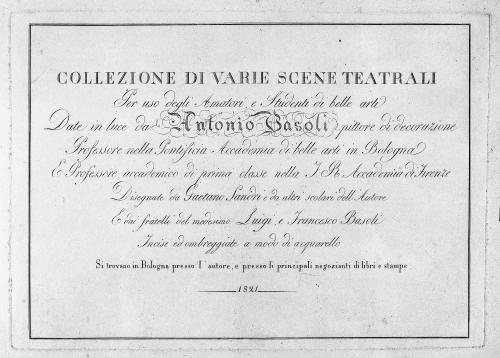 COLLEZIONE DI VARIE SCENE TEATRALI
Per uso degli Amatori, e Studenti di belle arti
Date in luce da Antonio Basoli, pittore di decorazione
Professore nella Pontificia Accademia di belle arti in Bologna
E Professore accademico di prima classe nella I. R. Accademia di Firenze
Disegnate da Gaetano Sandri e da altri scolari dell'Autore
E dai fratelli del medesimo Luigi, e Francesco Basoli
Incise ed ombreggiate a modo di acquarello
Si trovano in Bologna presso l'autore, e presso li principali negozianti di libri e stampe
1821